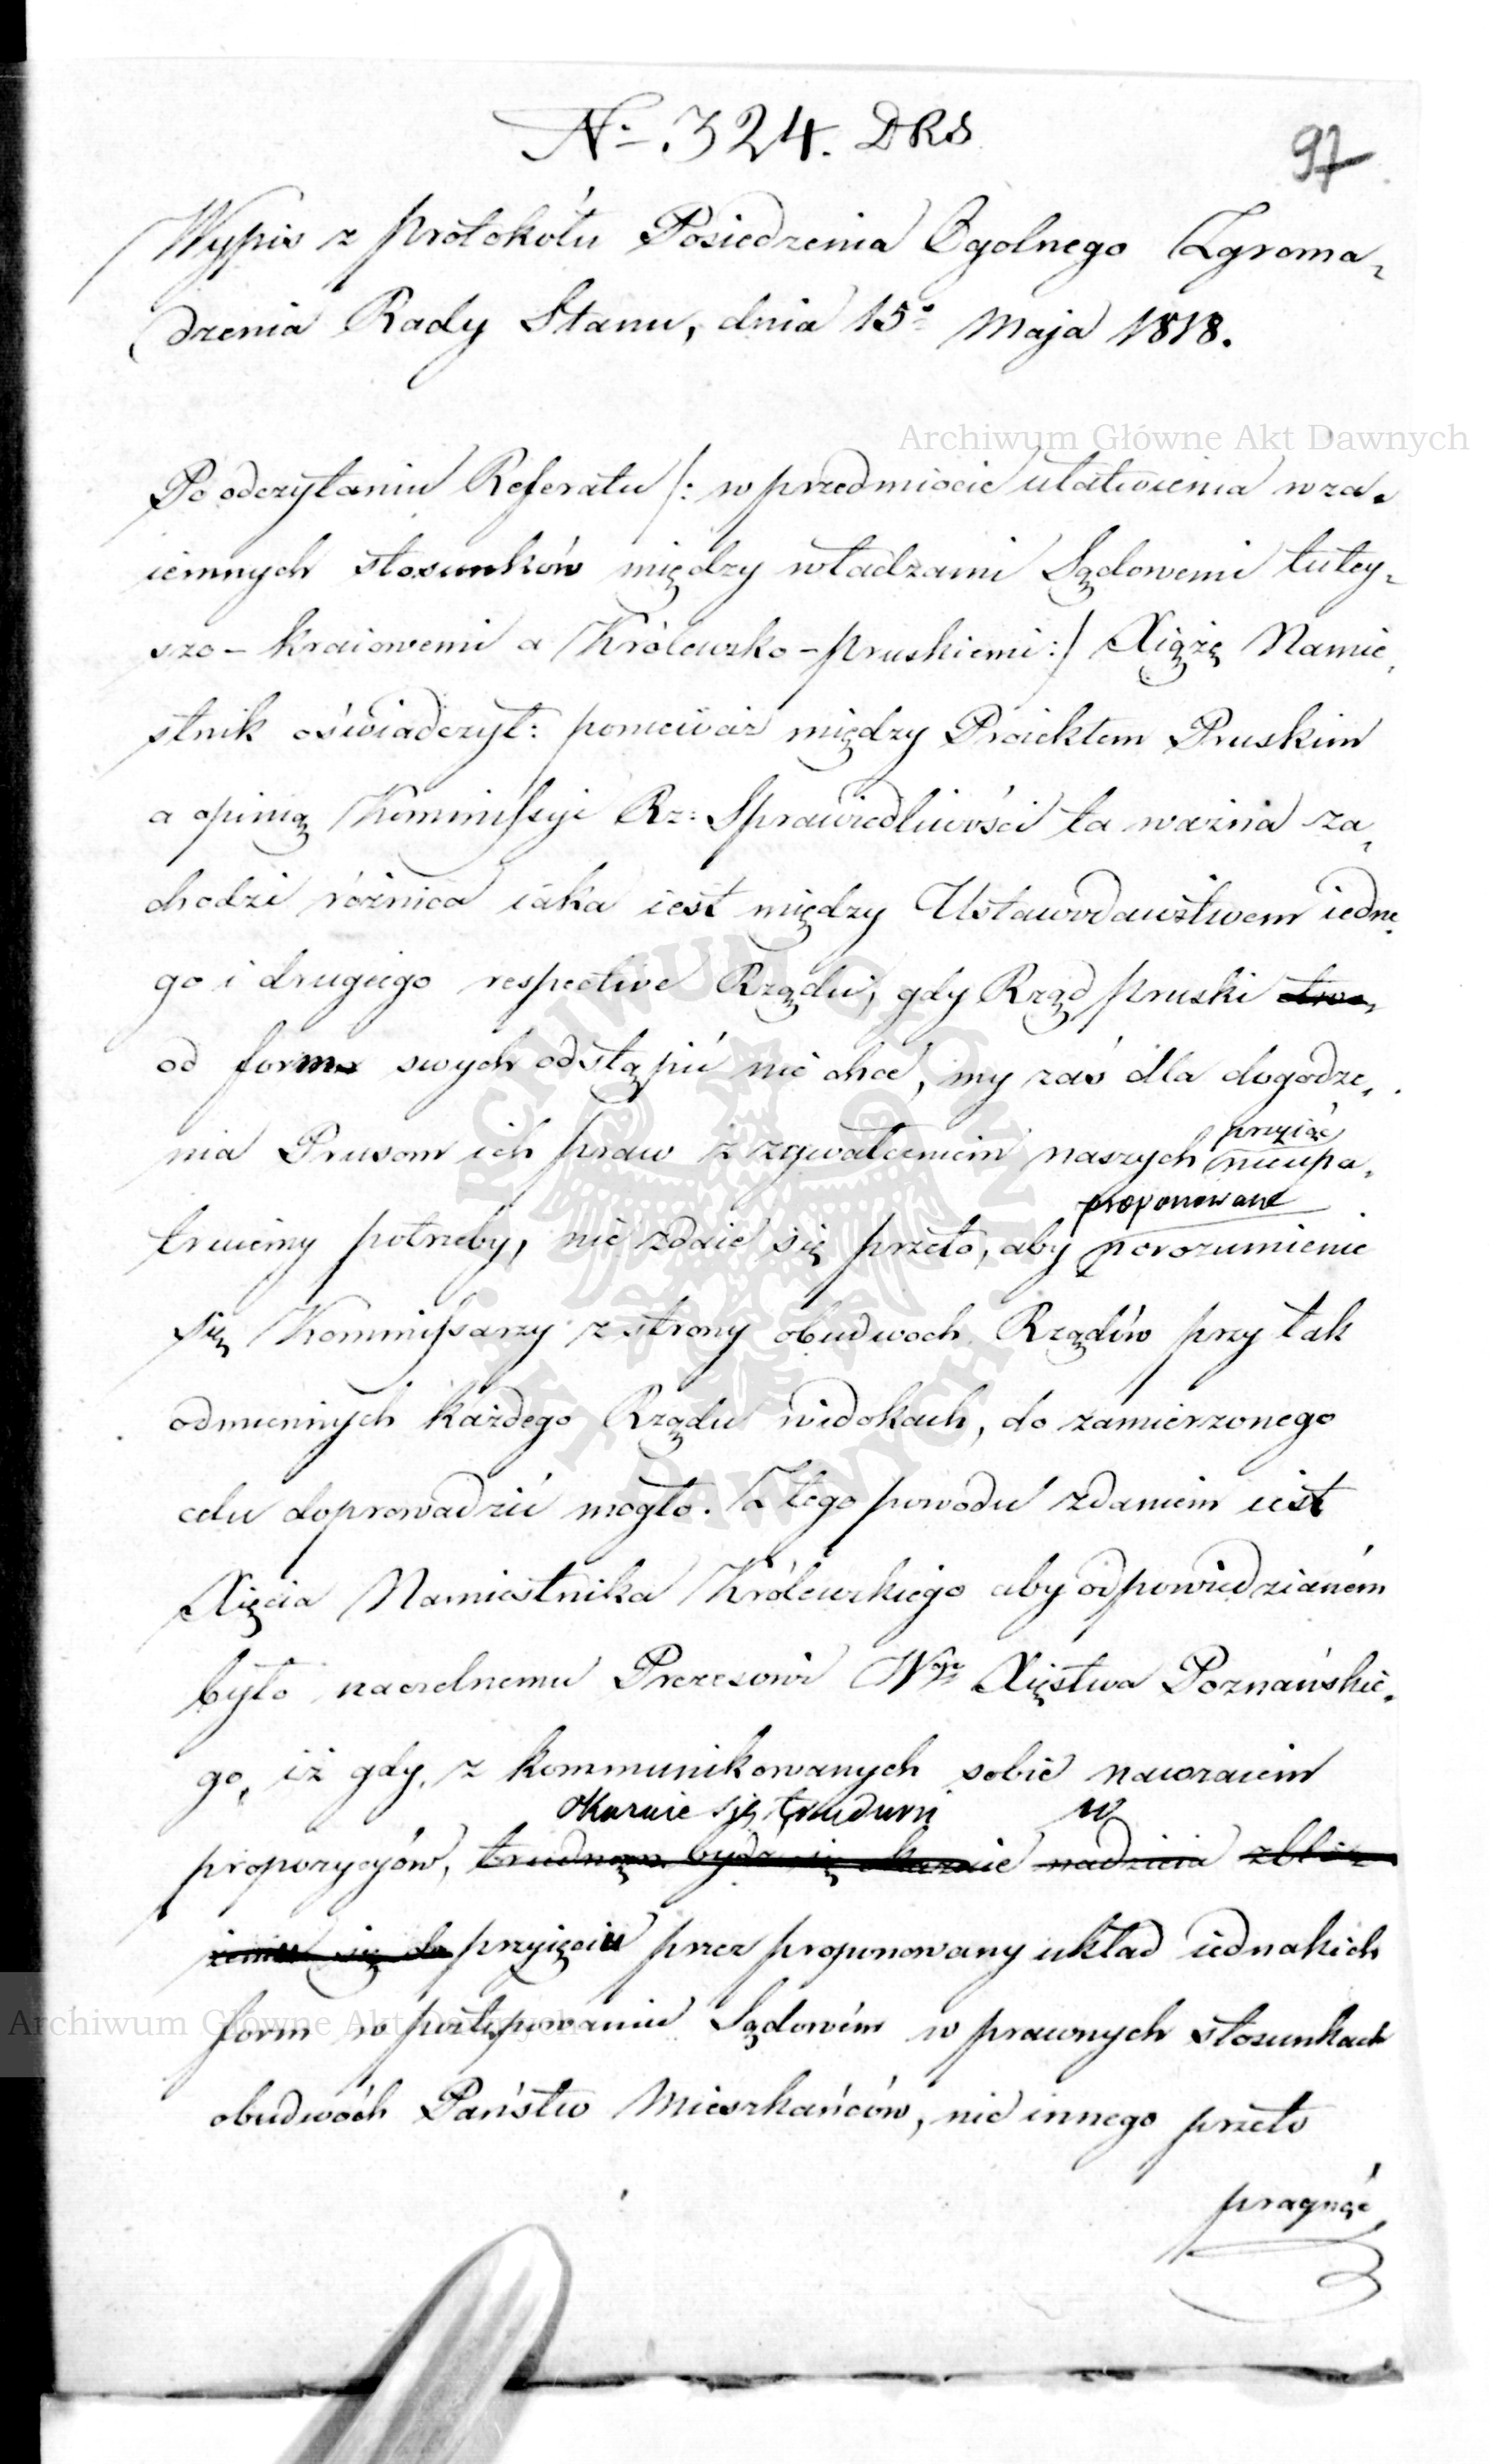 No. 324. DRS
97
Wypis z Protokółu Posiedzenia Ogolnego Zgroma-
dzenia Rady Stanu, dnia 15o Maja 1818.
Archiwum Główne Akt Dawnych
Po odczytaniu Referatu /: w przedmiocie ułatwienia wza-
iemnych stosunków między władzami Sądowemi tutey-
szo-kraiowemi a Królewsko-pruskiemi :/ Xiążę Namie-
stnik oświadczył: ponieważ między Proiektem Pruskim
a opinią Kommissyi Rz: Sprawiedliwości ta ważna za-
chodzi różnica iaka iest między Ustawodawstwem iedne-
go i drugiego respective Rządu, gdy Rząd pruski
od form swych odstąpić nie chce, my zaś dla dogodze-
nia Prusom ich praw z zgwałceniem naszych nieupa-
przyiąć
truiemy potrzeby, nie zdaie się przeto, aby porozumienie
proponowane
się Kommissarzy z strony obudwoch Rządów przy tak
odmiennych każdego Rządu widokach, do zamierzonego
celu doprowadzić mogło. Z tego powodu zdaniem iest
Xięcia Namiestnika Królewskiego aby odpowiedzianém
było naczelnemu Prezesowi Wgo Xięstwa Poznańskie-
go, iż gdy z kommunikowanych sobie nawzaiem
okazuie się trudność w
propozycyów, trudność być się okazuie nadzieia zbli-
żenia się do przyięciu przez proponowany układ iednakich
form w postępowaniu Sądowém w prawnych stosunkach
obudwóch Państw Mieszkańców, nic innego przeto
pragnąć
ARCHIWUM GŁÓWNE AKT DAWNYCH
Archiwum Główne Akt Dawnych